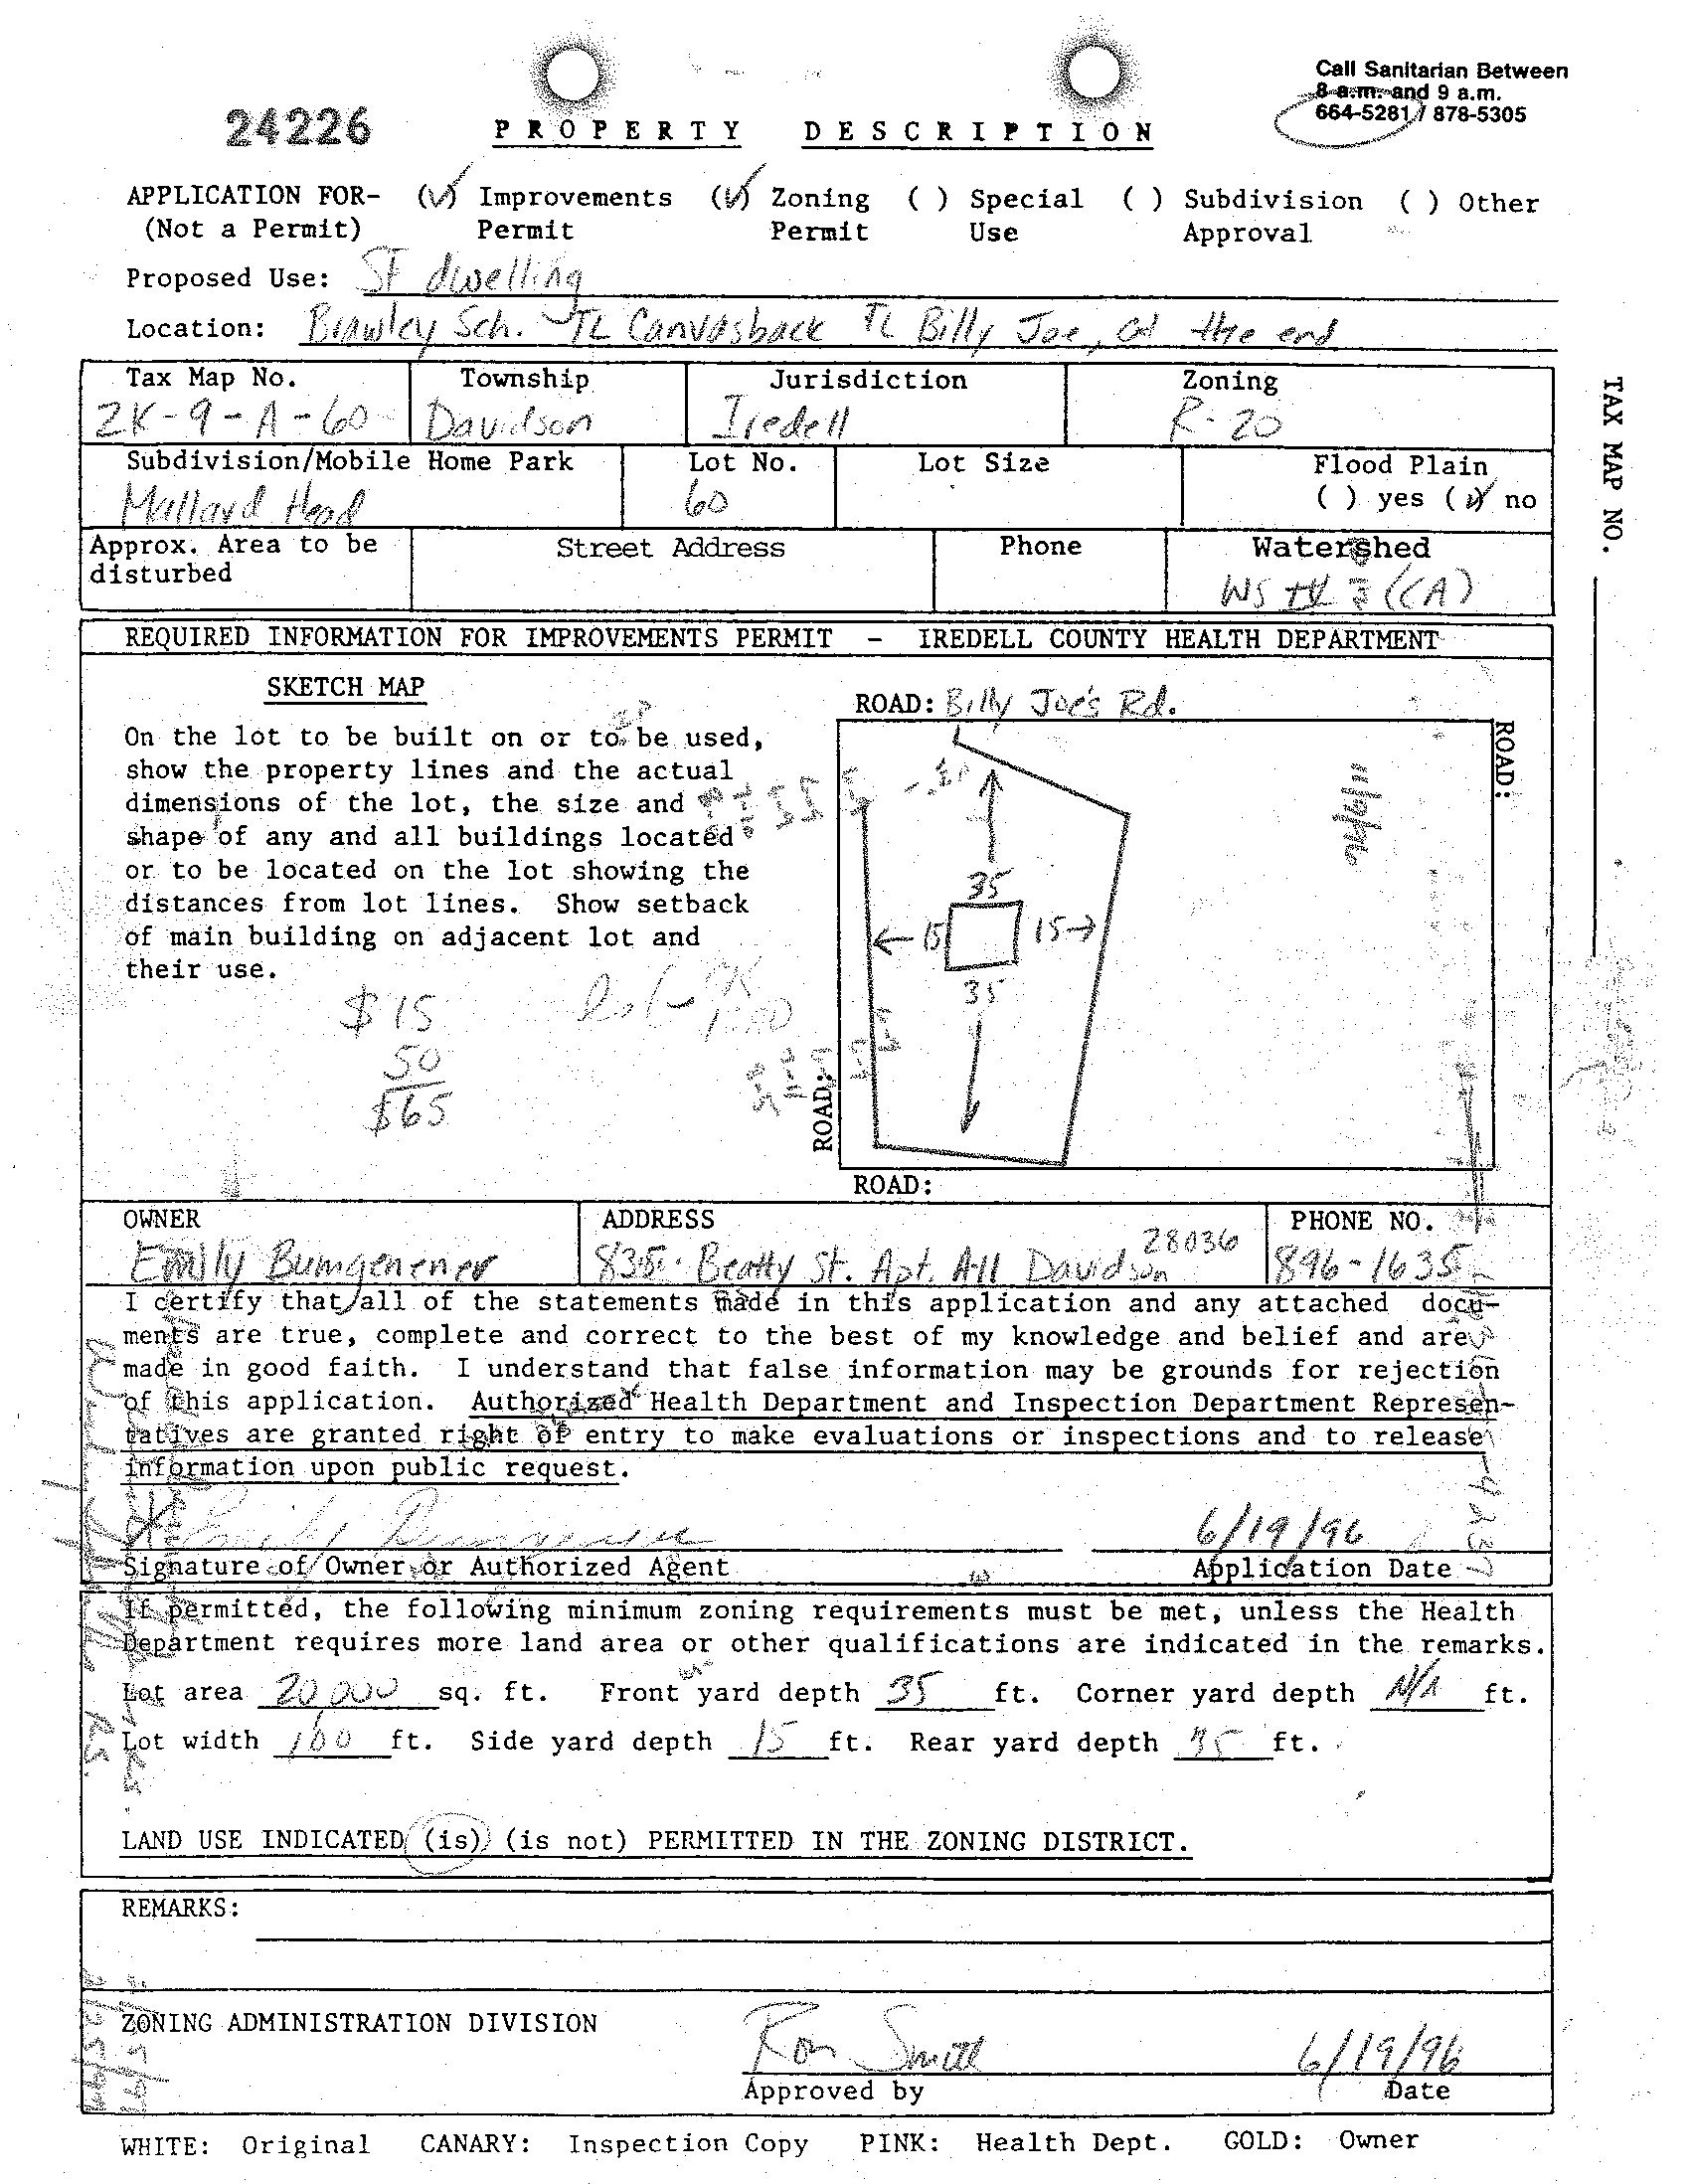 Call Sanitarian Between
8 a.m. and 9 a.m.
664-5281 / 878-5305
24226
PROPERTY DESCRIPTION
APPLICATION FOR- (✓) Improvements (✓) Zoning ( ) Special ( ) Subdivision ( ) Other
(Not a Permit) Permit Permit Use Approval
Proposed Use: SF dwelling
Location: Brawley Sch. TL Canvasback TL Billy Joe, at the end
Tax Map No. Township Jurisdiction Zoning
2K-9-A-60 Davidson Iredell R-20
Subdivision/Mobile Home Park Lot No. Lot Size Flood Plain
Mallard Head 60 ( ) yes (✓) no
Approx. Area to be disturbed Street Address Phone Watershed
WS IV (CA)
TAX MAP NO.
REQUIRED INFORMATION FOR IMPROVEMENTS PERMIT - IREDELL COUNTY HEALTH DEPARTMENT
SKETCH MAP
On the lot to be built on or to be used,
show the property lines and the actual
dimensions of the lot, the size and
shape of any and all buildings located
or to be located on the lot showing the
distances from lot lines. Show setback
of main building on adjacent lot and
their use.
$15
50
$65
ROAD: Billy Joe's Rd.
ROAD:
35
15 15
35
ROAD:
ROAD:
OWNER ADDRESS PHONE NO.
Emily Bumgenener 835 Beatty St. Apt. A11 Davidson 28036 896-1635
I certify that all of the statements made in this application and any attached docu-
ments are true, complete and correct to the best of my knowledge and belief and are
made in good faith. I understand that false information may be grounds for rejection
of this application. Authorized Health Department and Inspection Department Represen-
tatives are granted right of entry to make evaluations or inspections and to release
information upon public request.
6/19/96
Signature of Owner or Authorized Agent Application Date
If permitted, the following minimum zoning requirements must be met, unless the Health
Department requires more land area or other qualifications are indicated in the remarks.
Lot area 20,000 sq. ft. Front yard depth 35 ft. Corner yard depth N/A ft.
Lot width 100 ft. Side yard depth 15 ft. Rear yard depth 35 ft.
LAND USE INDICATED (is) (is not) PERMITTED IN THE ZONING DISTRICT.
REMARKS:
ZONING ADMINISTRATION DIVISION
Ron Smith 6/19/96
Approved by Date
WHITE: Original CANARY: Inspection Copy PINK: Health Dept. GOLD: Owner